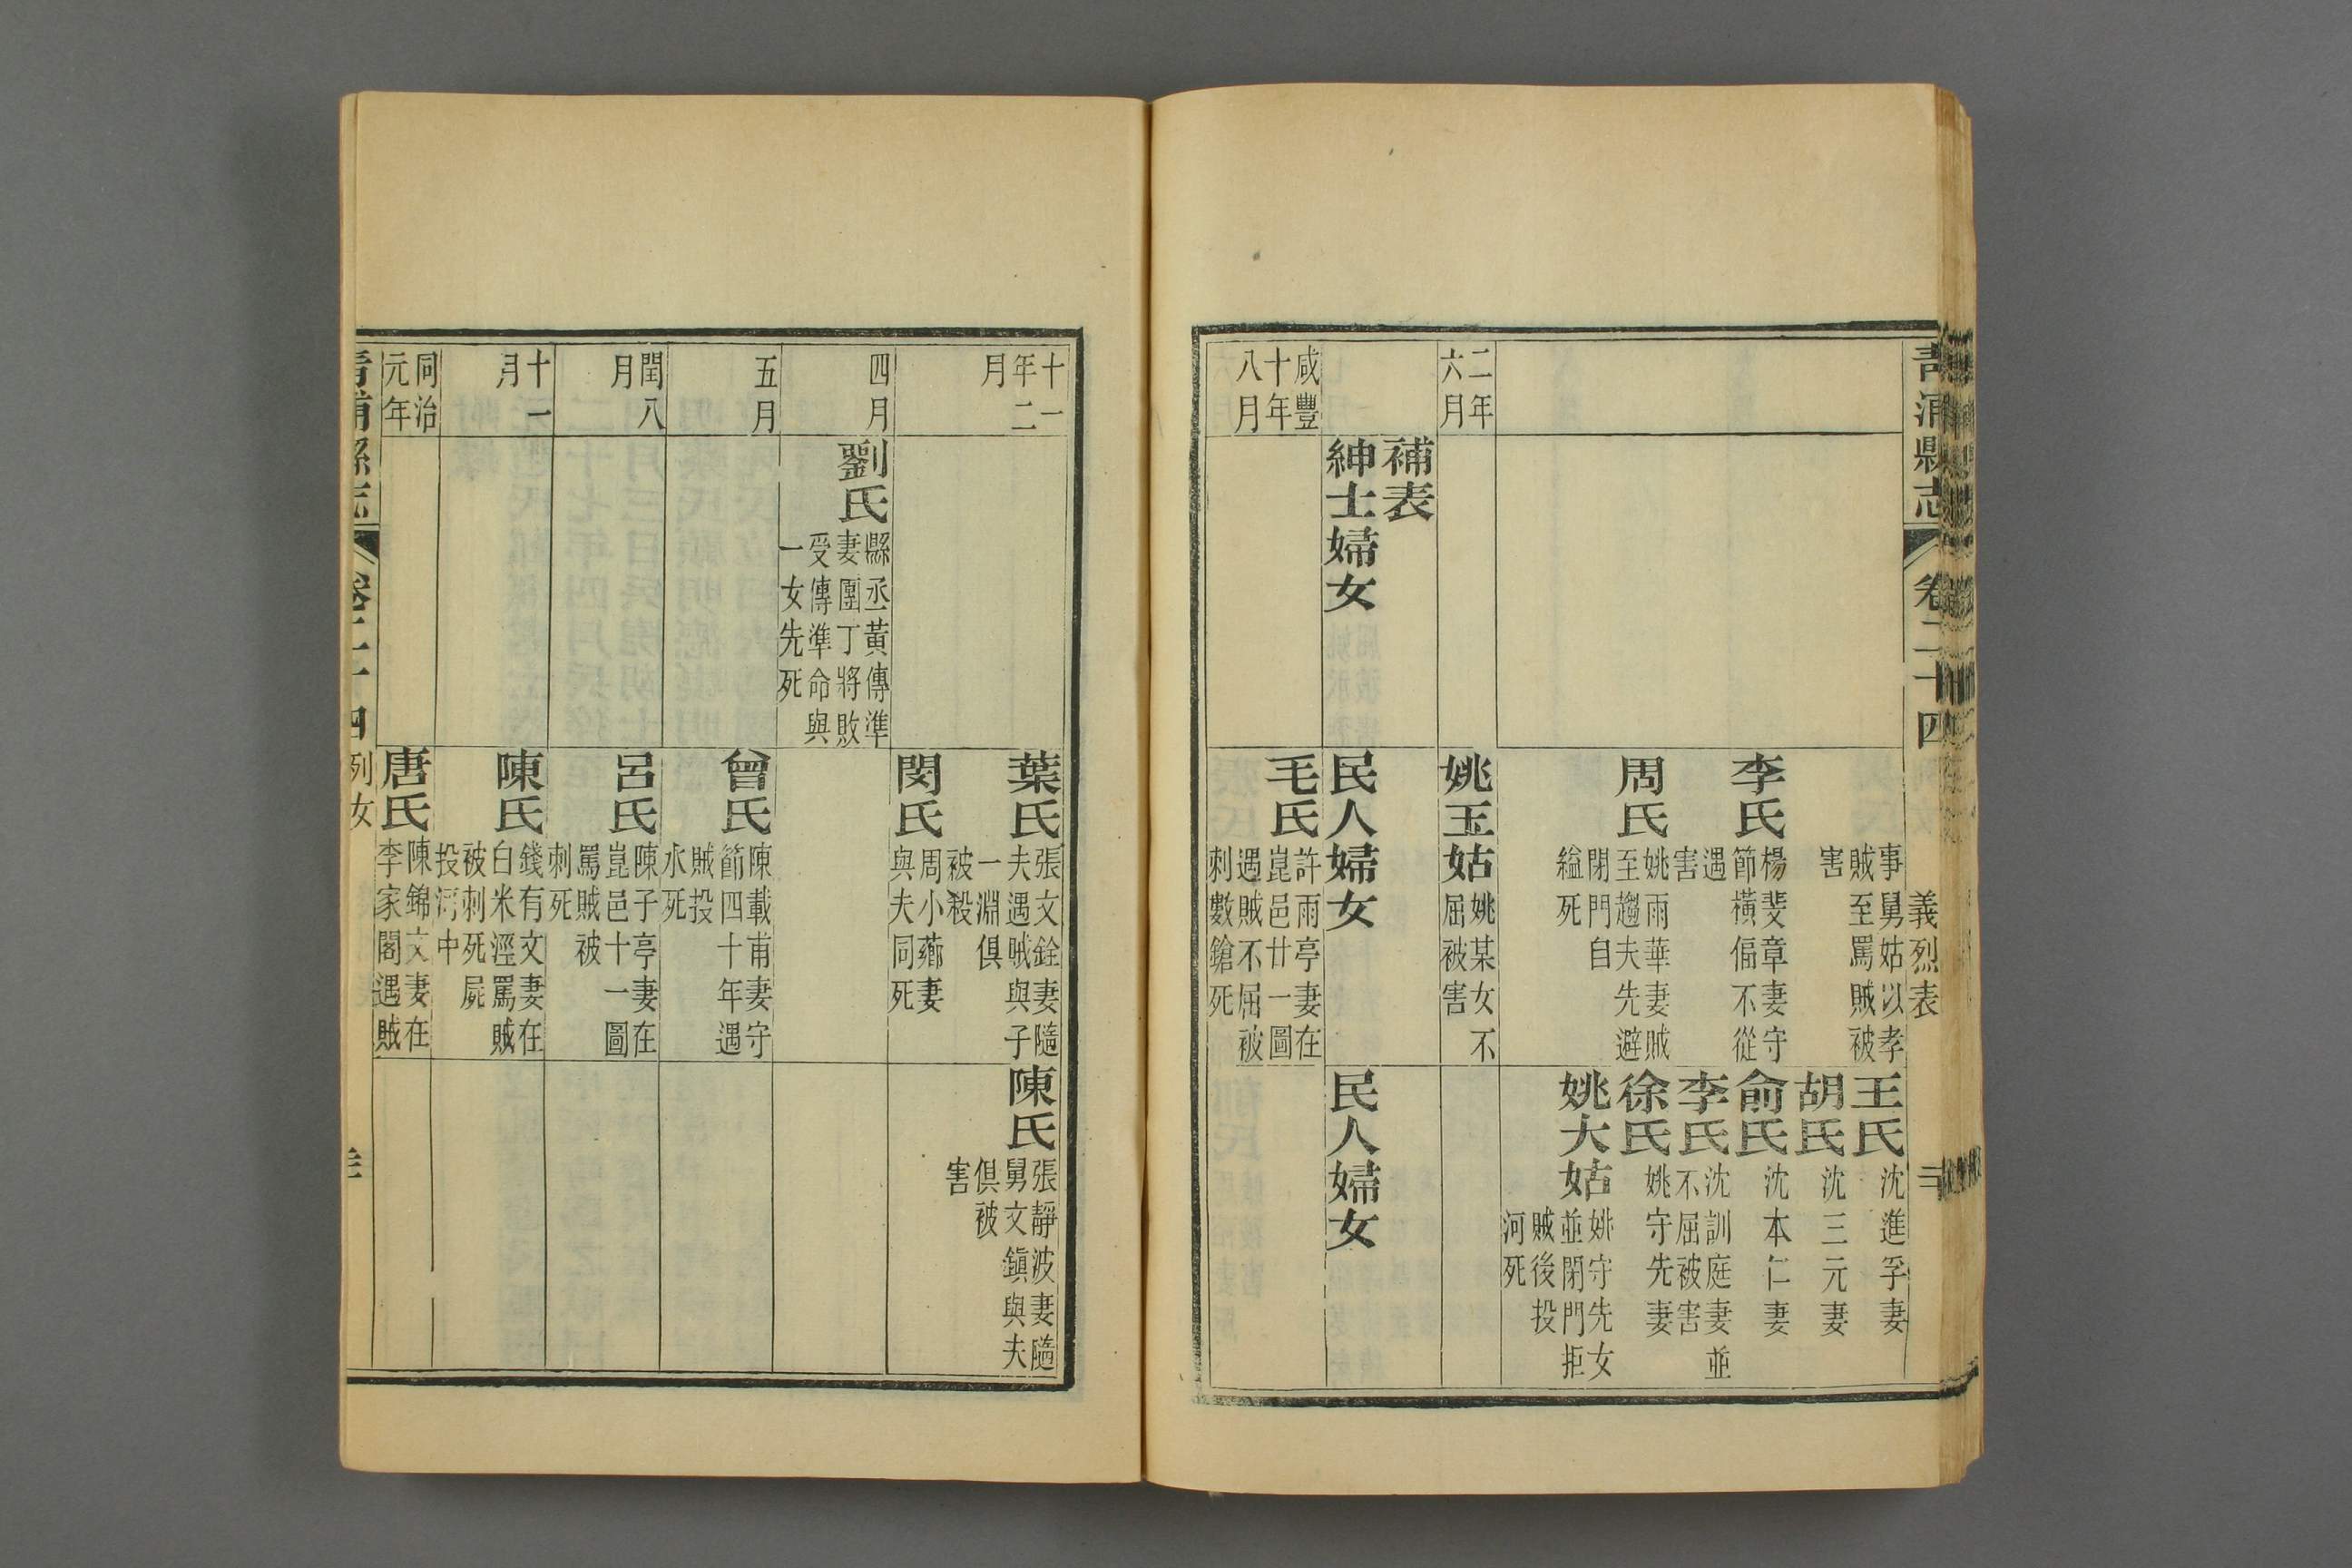 青浦縣志 卷二十四 義烈表 三
事舅姑以孝
賊至罵賊被
害
王氏 沈進孚妻
胡氏 沈三元妻
李氏 楊斐章妻守
節橫偪不從
遇
害
俞氏 沈本仁妻
李氏 沈訓庭妻並
不屈被害
周氏 姚雨華妻賊
至趨夫先避
閉門自
縊死
徐氏 姚守先妻
姚大姑 姚守先女
並閉門拒
賊後投
河死
二年
六月
姚玉姑 姚某女不
屈被害
補表
紳士婦女
民人婦女
民人婦女
咸豐
十年
八月
毛氏 許雨亭妻在
崑邑廿一圖
遇賊不屈被
刺數鎗死
十一
年二
月
葉氏 張文銓妻隨
夫遇賊與子
一淵俱
被殺
陳氏 張靜波妻隨
舅文鎮與夫
俱被
害
閔氏 周小薌妻
與夫同死
四月
劉氏 縣丞黃傳準
妻團丁將敗
受傳準命與
一女先死
五月
曾氏 陳載甫妻守
節四十年遇
賊投
水死
閏八
月
呂氏 陳子亭妻在
崑邑十一圖
罵賊被
刺死
十一
月
陳氏 錢有文妻在
白米涇罵賊
被刺死屍
投河中
同治
元年
唐氏 陳錦文妻在
李家閣遇賊
青浦縣志 卷二十四 列女